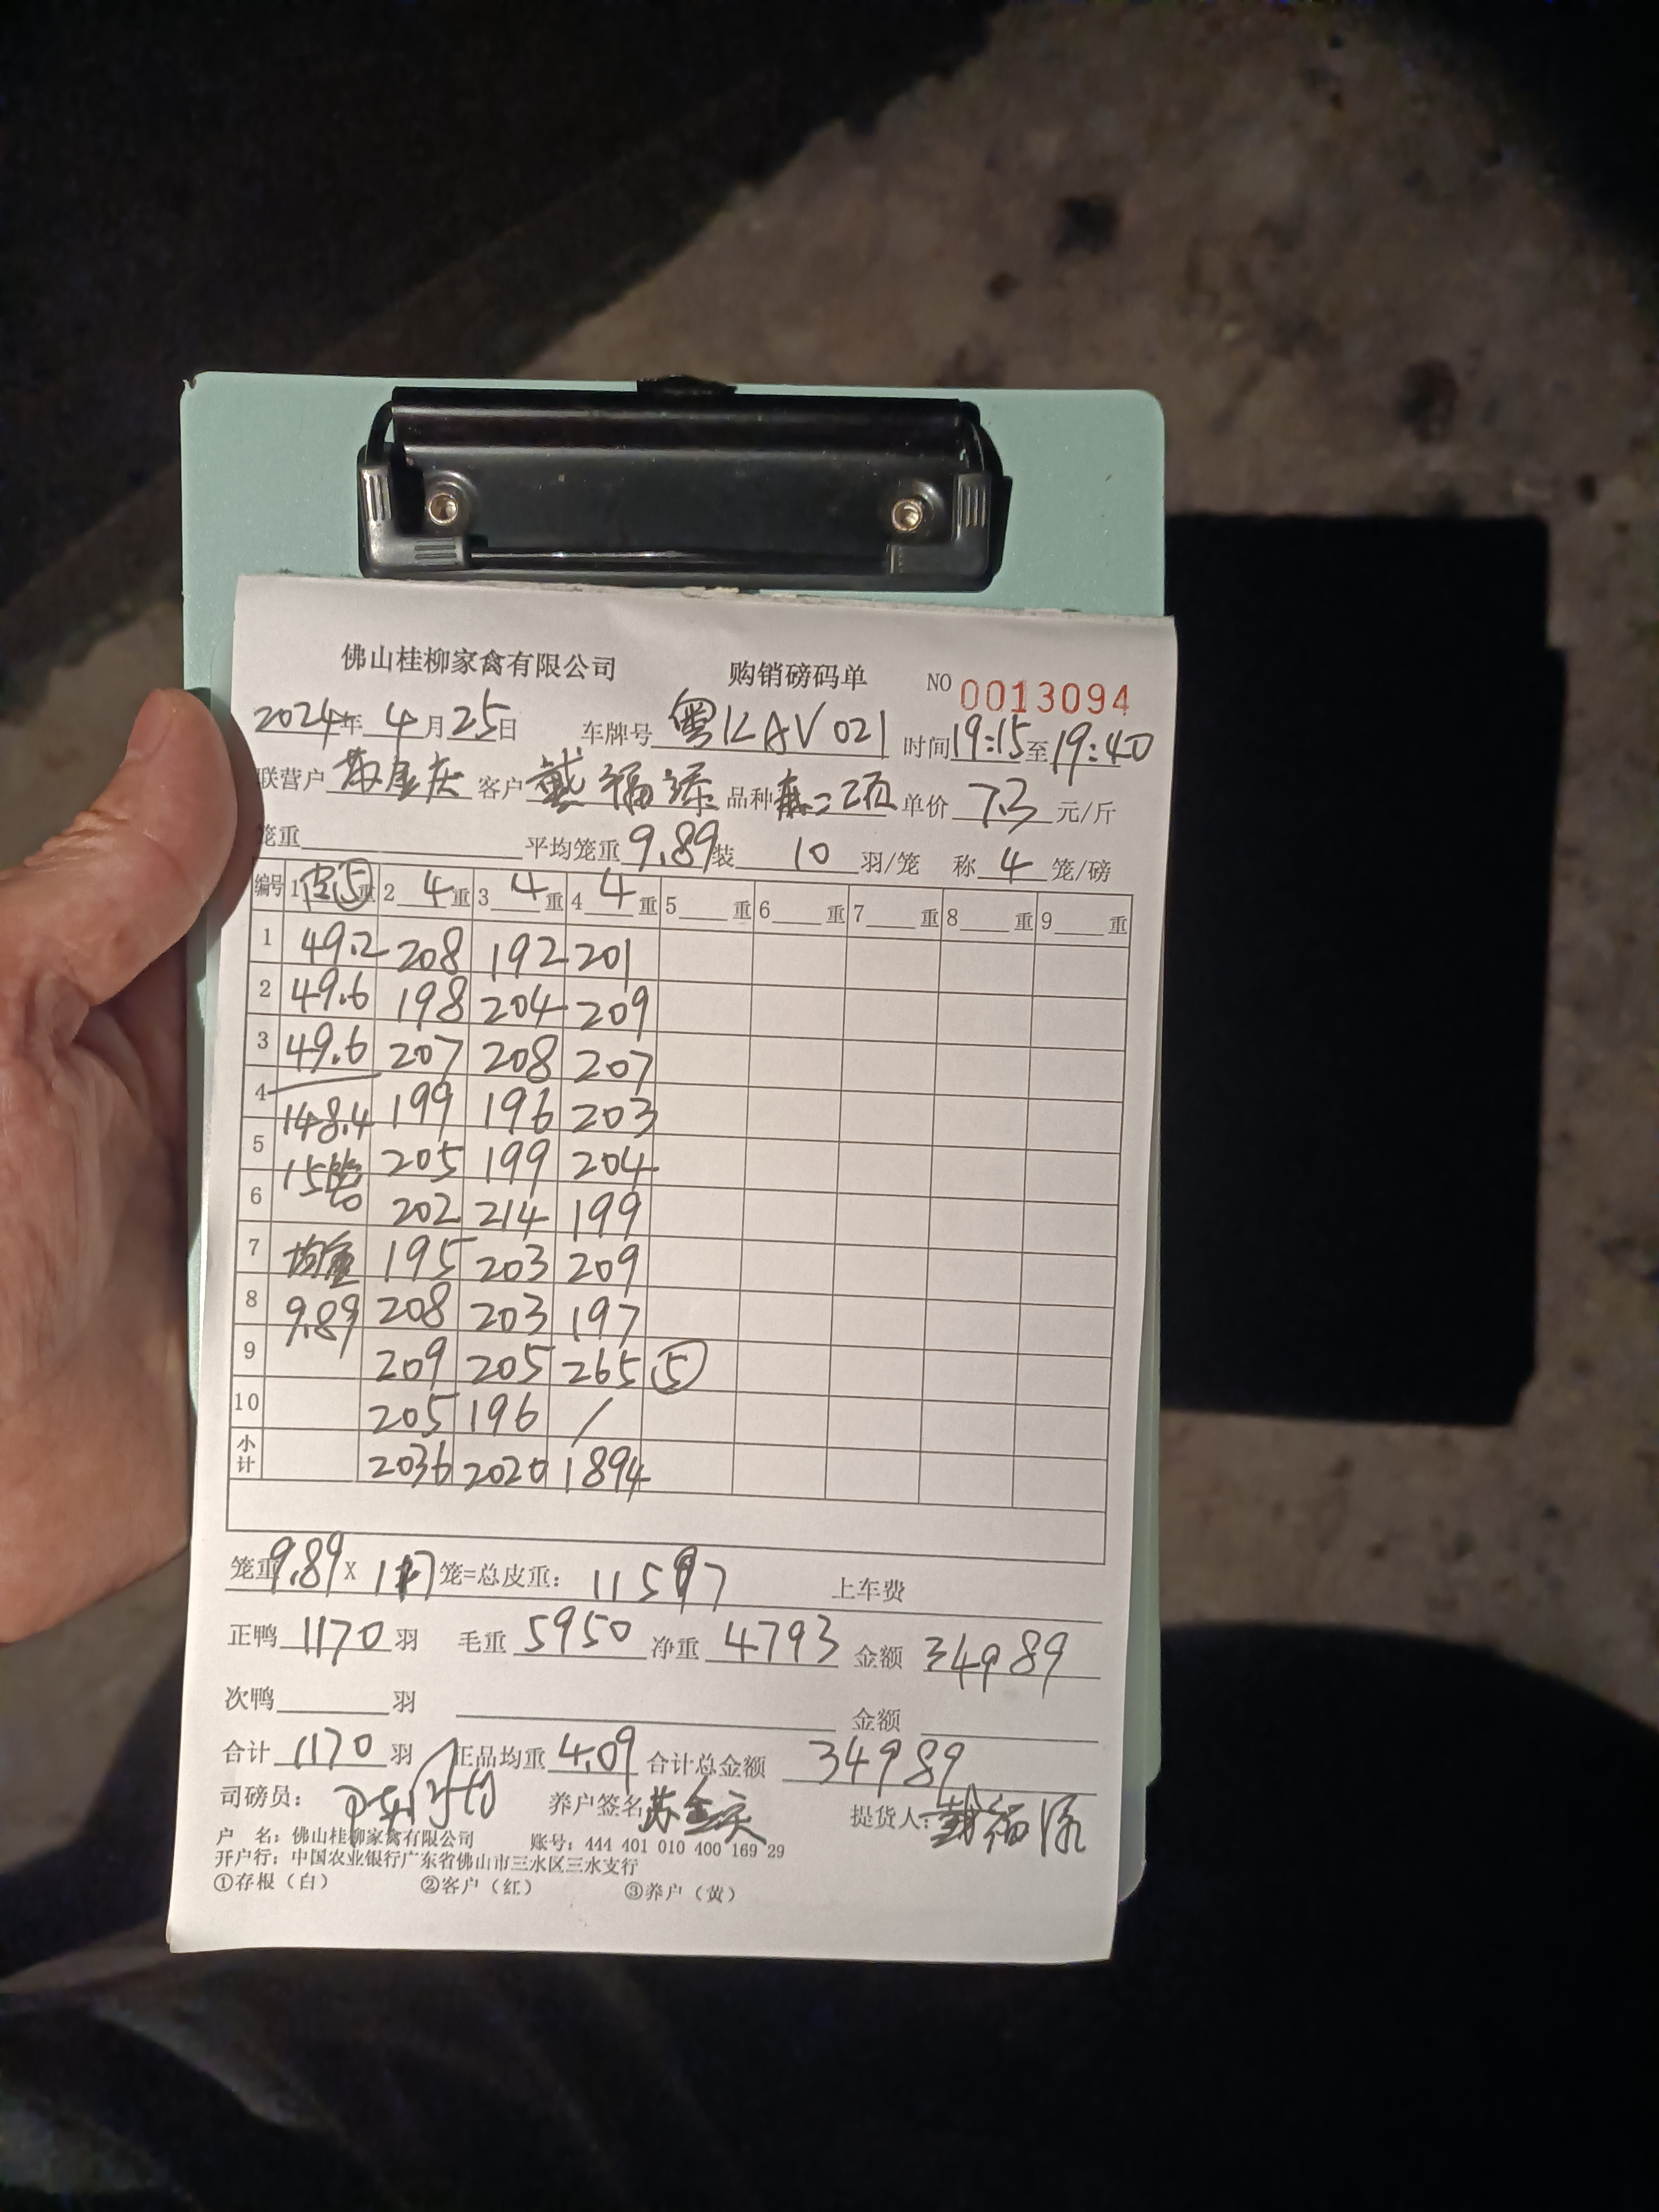 佛山桂柳家禽有限公司 购销磅码单 NO 0013094
2024年 4月25日 车牌号 粤KAV021 时间19:15至19:40
联营户 客户 戴福添 品种 单价 7.3 元/斤
笼重 平均笼重 9.89 装 10 羽/笼 称 4 笼/磅
编号 1 皮⑤ 重 2 4 重 3 4 重 4 4 重 5 重 6 重 7 重 8 重 9 重
1 49.2 208 192 201
2 49.6 198 204 209
3 49.6 207 208 207
4 148.4 199 196 203
5 15笼 205 199 204
6 202 214 199
7 均重 195 203 209
8 9.89 208 203 197
9 209 205 265 ⑤
10 205 196 /
小计 2036 2020 1894
笼重 9.89 X 117 笼=总皮重: 1157 上车费
正鸭 1170 羽 毛重 5950 净重 4793 金额 34989
次鸭 羽 金额
合计 1170 羽 正品均重 4.09 合计总金额 34989
司磅员: 养户签名 提货人: 戴福添
户 名: 佛山桂柳家禽有限公司 账号: 444 401 010 400 169 29
开户行: 中国农业银行广东省佛山市三水区三水支行
①存根(白) ②客户(红) ③养户(黄)